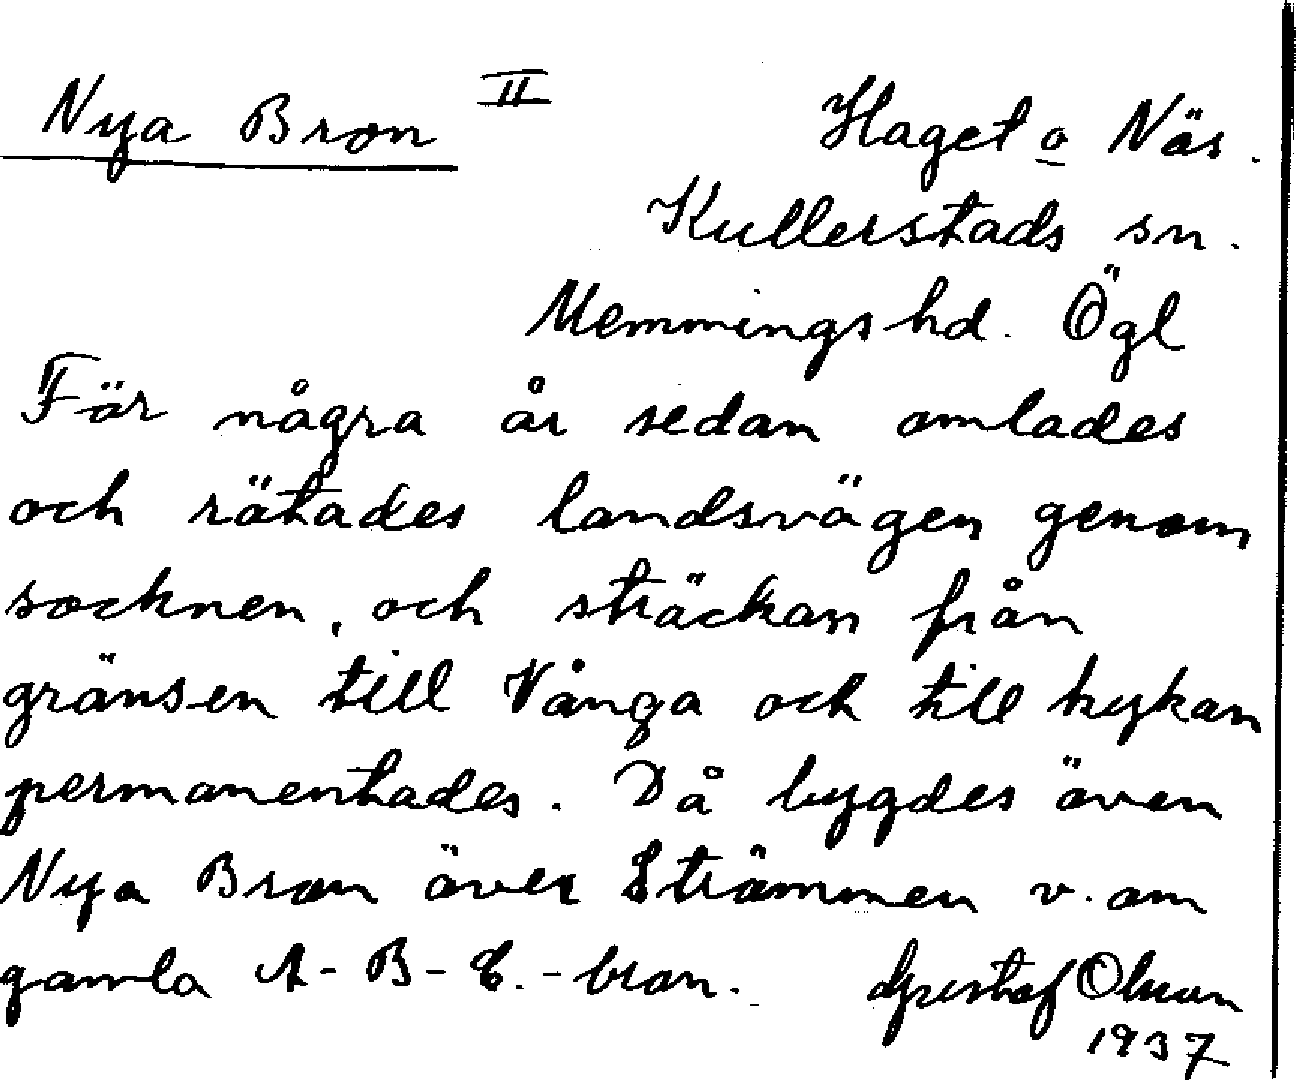 Nya Bron II
Haget o Näs.
Kullerstads sn.
Memmings hd. Ögl
För några år sedan omlades
och rätades landsvägen genom
socknen, och sträckan från
gränsen till Vånga och till kykan
permanentades. Då bygdes även
Nya Bron över Strömmen v. om
gamla A-B-C.-bron. Gustaf Olsson
1937